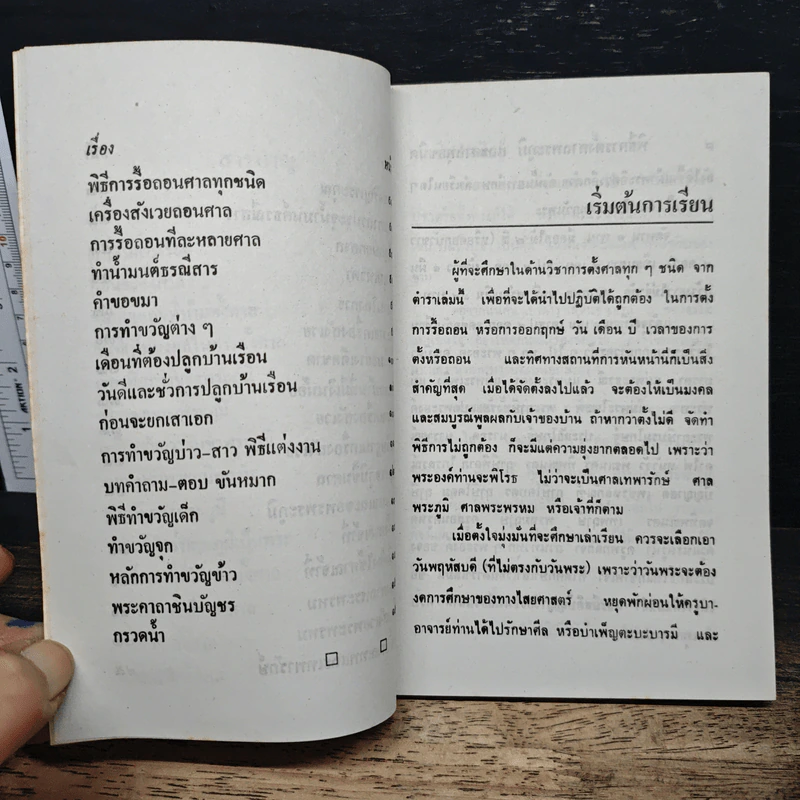 เรื่อง
พิธีการรื้อถอนศาลทุกชนิด
เครื่องสังเวยถอนศาล
การรื้อถอนทีละหลายศาล
ทำน้ำมนต์ธรณีสาร
คำขอขมา
การทำขวัญต่าง ๆ
เดือนที่ต้องปลูกบ้านเรือน
วันดีและชั่วการปลูกบ้านเรือน
ก่อนจะยกเสาเอก
การทำขวัญบ่าว-สาว พิธีแต่งงาน
บทคำถาม-ตอบ ขันหมาก
พิธีทำขวัญเด็ก
ทำขวัญจุก
หลักการทำขวัญข้าว
พระคาถาชินบัญชร
กรวดน้ำ
เริ่มต้นการเรียน
ผู้ที่จะศึกษาในด้านวิชาการตั้งศาลทุก ๆ ชนิด จาก
ตำราเล่มนี้ เพื่อที่จะได้นำไปปฏิบัติได้ถูกต้อง ในการตั้ง
การรื้อถอน หรือการออกฤกษ์ วัน เดือน ปี เวลาของการ
ตั้งหรือถอน และทิศทางสถานที่การหันหน้านี้ก็เป็นสิ่ง
สำคัญที่สุด เมื่อได้จัดตั้งลงไปแล้ว จะต้องให้เป็นมงคล
และสมบูรณ์พูลผลกับเจ้าของบ้าน ถ้าหากว่าตั้งไม่ดี จัดทำ
พิธีการไม่ถูกต้อง ก็จะมีแต่ความยุ่งยากตลอดไป เพราะว่า
พระองค์ท่านจะพิโรธ ไม่ว่าจะเป็นศาลเทพารักษ์ ศาล
พระภูมิ ศาลพระพรหม หรือเจ้าที่ก็ตาม
เมื่อตั้งใจมุ่งมั่นที่จะศึกษาเล่าเรียน ควรจะเลือกเอา
วันพฤหัสบดี (ที่ไม่ตรงกับวันพระ) เพราะว่าวันพระจะต้อง
งดการศึกษาของทางไสยศาสตร์ หยุดพักผ่อนให้ครูบา-
อาจารย์ท่านได้ไปรักษาศีล หรือบำเพ็ญตะบะบารมี และ